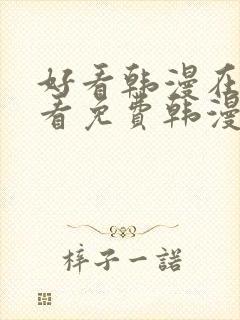 好看韩漫在
看免费韩漫
梓子一諾